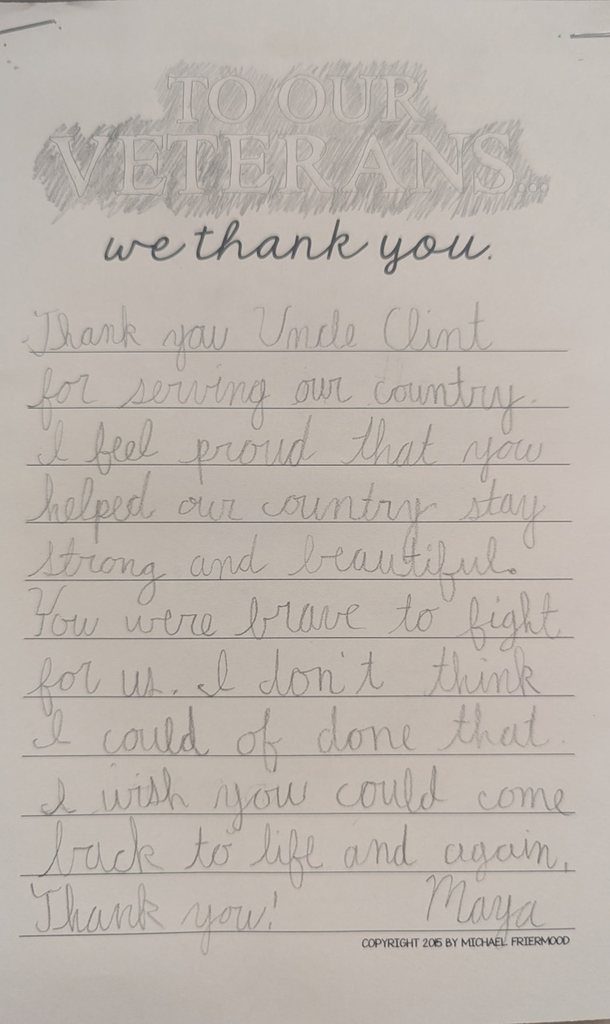 TO OUR
VETERANS...
we thank you.
Thank you Uncle Clint
for serving our country.
I feel proud that you
helped our country stay
strong and beautiful.
You were brave to fight
for us. I don't think
I could of done that.
I wish you could come
back to life and again,
Thank you! Maya
COPYRIGHT 2015 BY MICHAEL FRIERMOOD